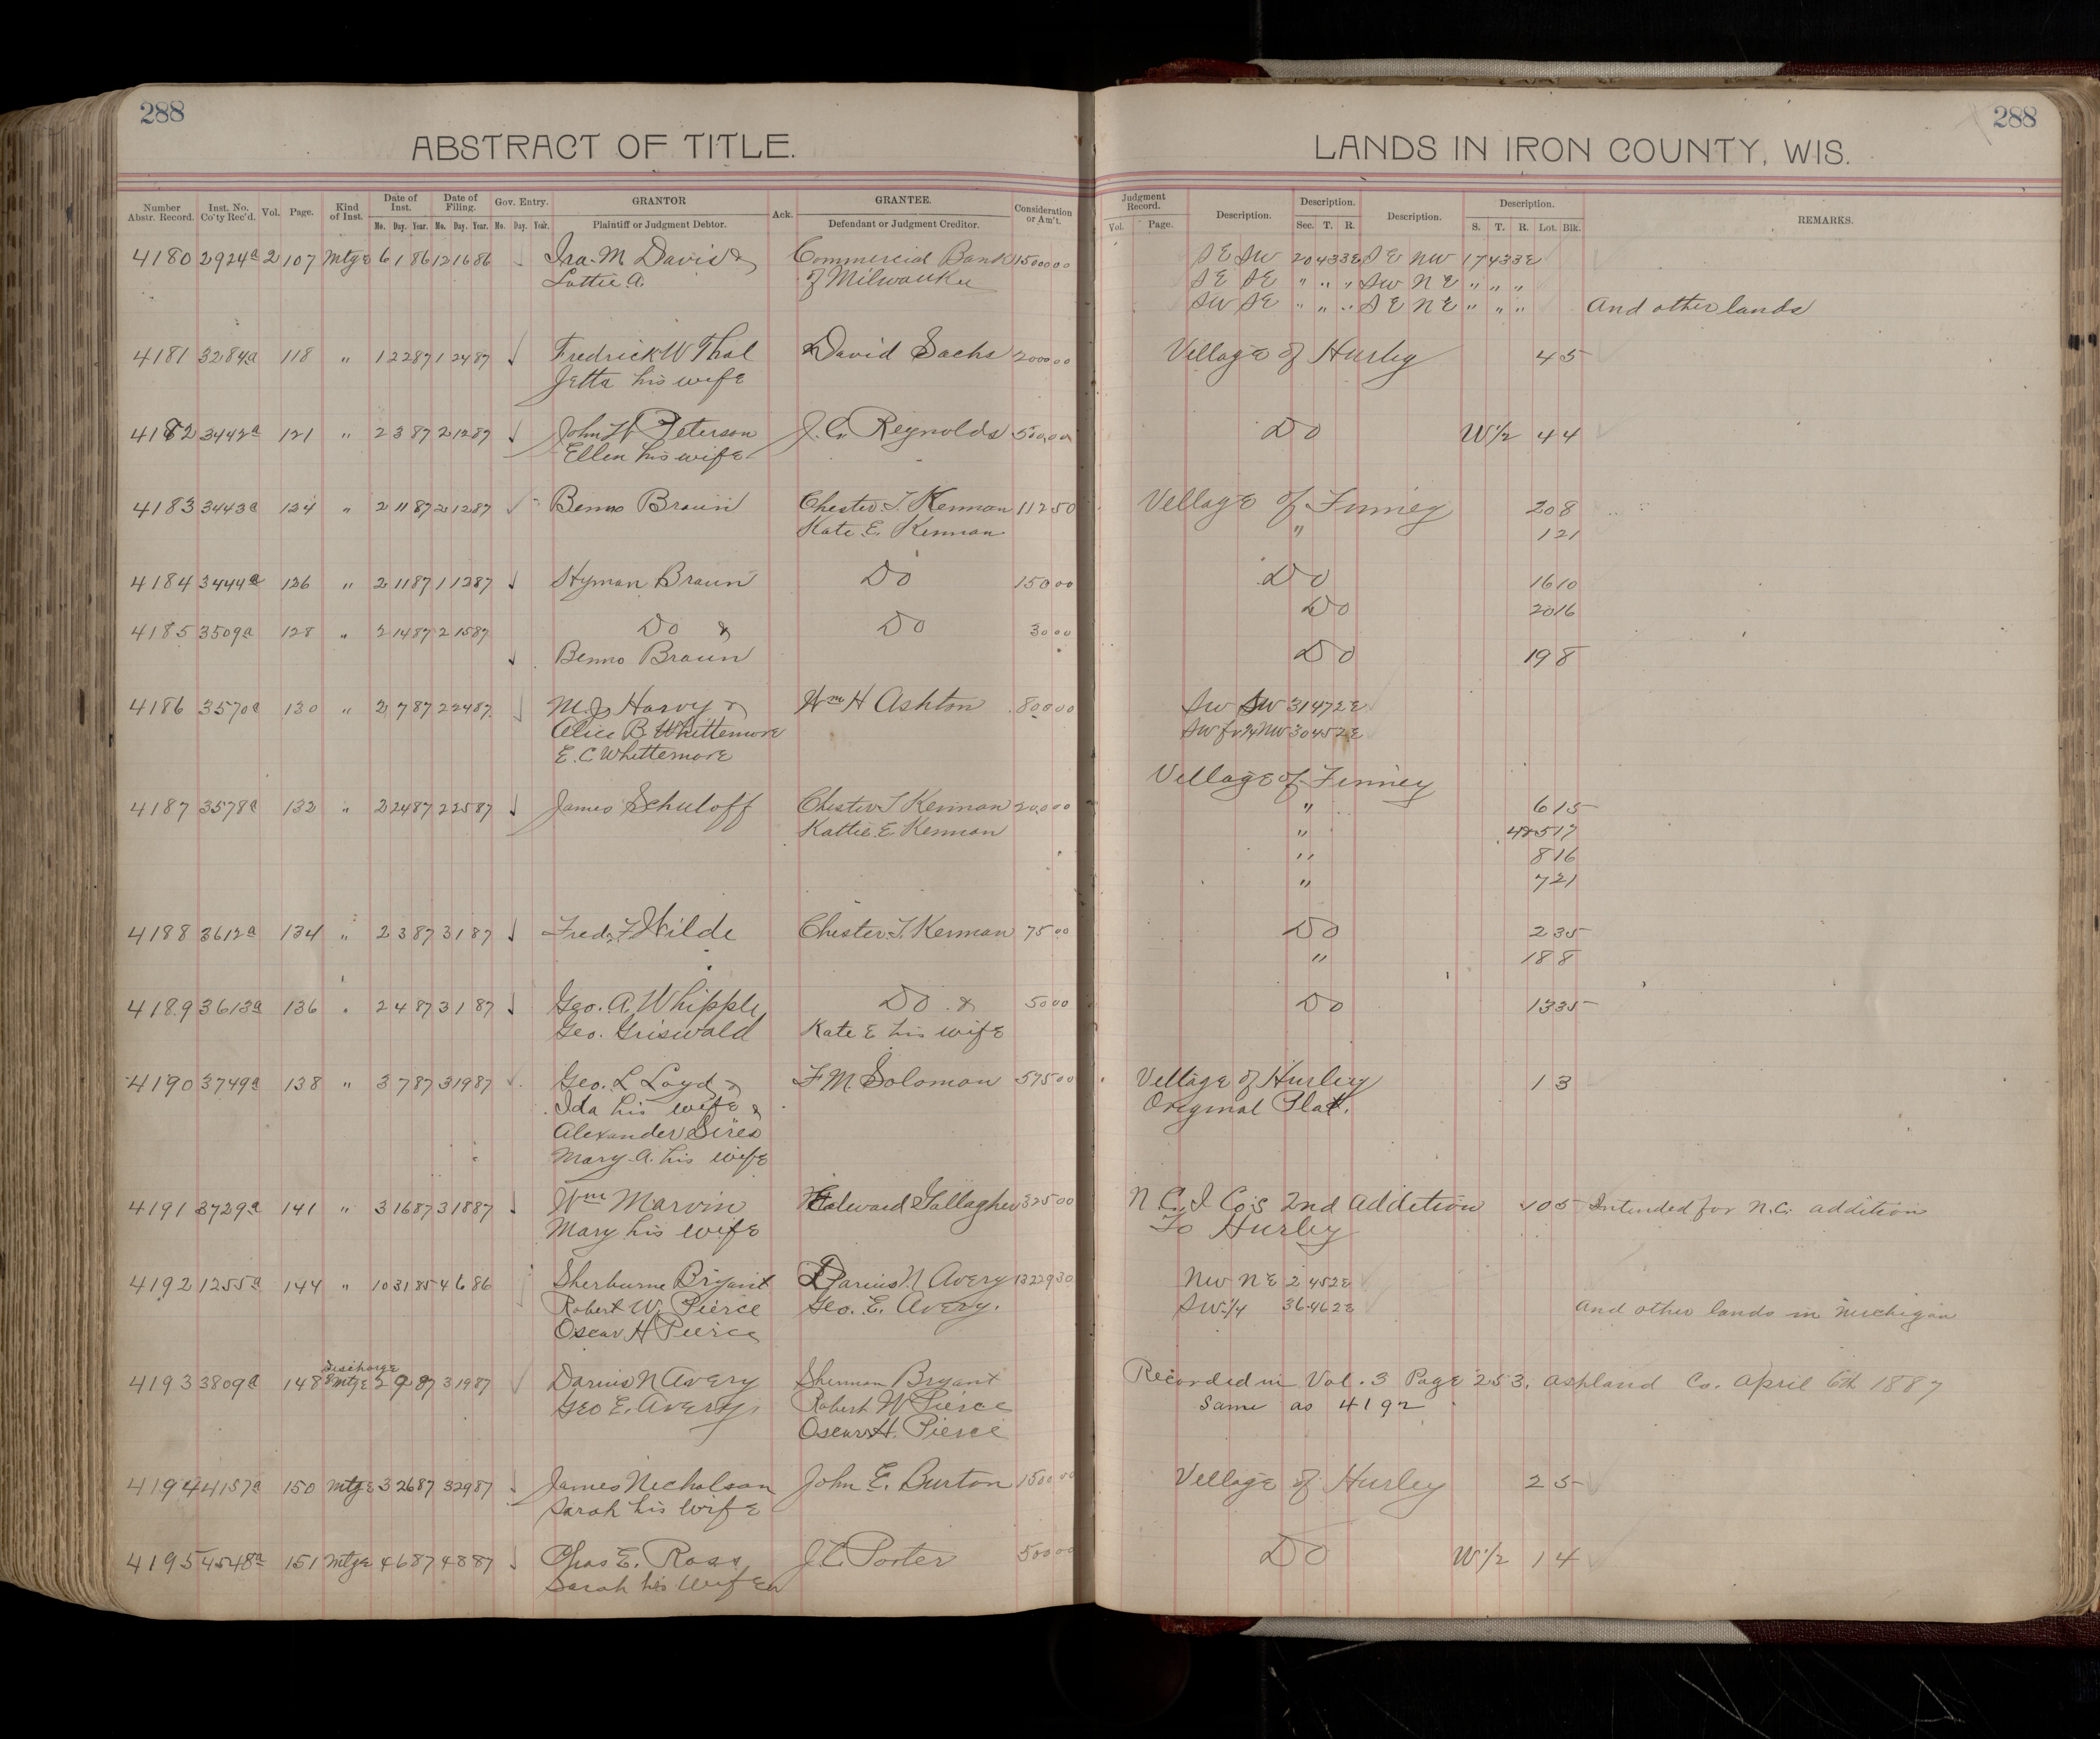 288
ABSTRACT OF TITLE.
Number Abstr. Record. Inst. No. Co'ty Rec'd. Vol. Page. Kind of Inst. Date of Inst. Date of Filing. Gov. Entry. GRANTOR Ack. GRANTEE. Consideration or Am't.
Mo. Day. Year. Mo. Day. Year. Mo. Day. Year. Plaintiff or Judgment Debtor. Defendant or Judgment Creditor.
4180 2924a 2 107 Mtge 6 1 86 12 16 86 Ira M Davis & Commercial Bank 15000 00
Lottie A. of Milwaukee
4181 3284a 118 " 1 22 87 1 24 87 Fredrick W Thal David Sachs 2000 00
Jetta his wife
4182 3442a 121 " 2 3 87 2 12 87 John H Peterson J. C. Reynolds 500 00
Ellen his wife
4183 3443a 124 " 2 11 87 2 12 87 Benno Braun Chester T. Kennan 112 50
Kate E. Kennan
4184 3444a 126 " 2 11 87 1 12 87 Hyman Braun Do 150 00
4185 3509a 128 " 2 14 87 2 15 87 Do & Do 30 00
Benno Braun
4186 3570a 130 " 2 7 87 2 24 87 M. J. Harvy & Wm H Ashton 800 00
Alice B Whittemore
E. C Whittemore
4187 3578a 132 " 2 24 87 2 25 87 James Schuloff Chester T Kennan 200 00
Kattie E Kennan
4188 3612a 134 " 2 3 87 3 1 87 Fred. F Wilde Chester T. Kennan 75 00
4189 3613a 136 " 2 4 87 3 1 87 Geo. A Whipple Do & 50 00
Geo. Griswald Kate E his wife
4190 3749a 138 " 3 7 87 3 19 87 Geo. L Loyd & F M Solomon 575 00
Ida his wife &
Alexander Sires
Mary A. his wife
4191 3729a 141 " 3 16 87 3 18 87 Wm Marvin Edward Gallagher 325 00
Mary his wife
4192 1255a 144 " 10 31 85 4 6 86 Sherburne Bryant Darius N Avery 13229 30
Robert W. Pierce Geo. E. Avery.
Oscar H Pierce
Discharge
4193 3809a 148 Mtge 2 9 87 3 19 87 Darius N Avery Sherman Bryant
Geo E. Avery Robert W Pierce
Oscar H. Pierce
4194 4157a 150 Mtge 3 26 87 3 29 87 James Nicholson John E. Burton 150 00
Sarah his wife
4195 4548a 151 Mtge 4 6 87 4 8 87 Chas E. Ross J. C. Porter 500 00
Sarah his wife
288
LANDS IN IRON COUNTY, WIS.
Judgment Record. Description. Description. Description. Description. REMARKS.
Vol. Page. Sec. T. R. S. T. R. Lot. Blk.
SE SW 20 43 3E SE NW 17 43 3E
SE SE " " " SW NE " " "
SW SE " " " SE NE " " " And other lands
Village of Hurley 4 5
Do W 1/2 4 4
Village of Finney 20 8
" 12 1
Do 16 10
Do 20 16
Do 19 8
SW SW 31 47 2E
SW fr 1/4 NW 30 45 2E
Village of Finney
" 6 15
" 17
" 8 16
" 7 21
Do 23 5
" 18 8
Do 13 35
Village of Hurley 1 3
Original Plat.
N. C. I Co's 2nd Addition 10 5 Intended for N.C. addition
To Hurley
NW NE 2 45 2E
SW 1/4 36 46 2E And other lands in Michigan
Recorded in Vol. 3 Page 253, Ashland Co. April 6th 1887
Same as 4192
Village of Hurley 2 5
Do W 1/2 1 4